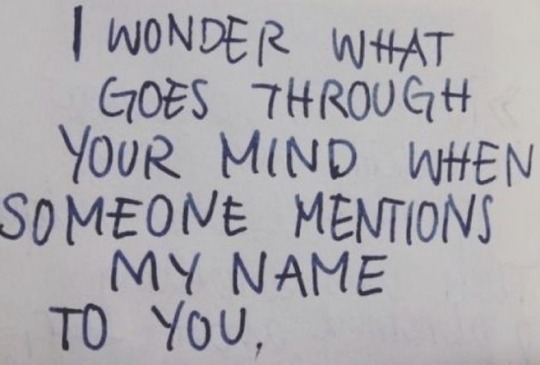 I WONDER WHAT
GOES THROUGH
YOUR MIND WHEN
SOMEONE MENTIONS
MY NAME
TO YOU,